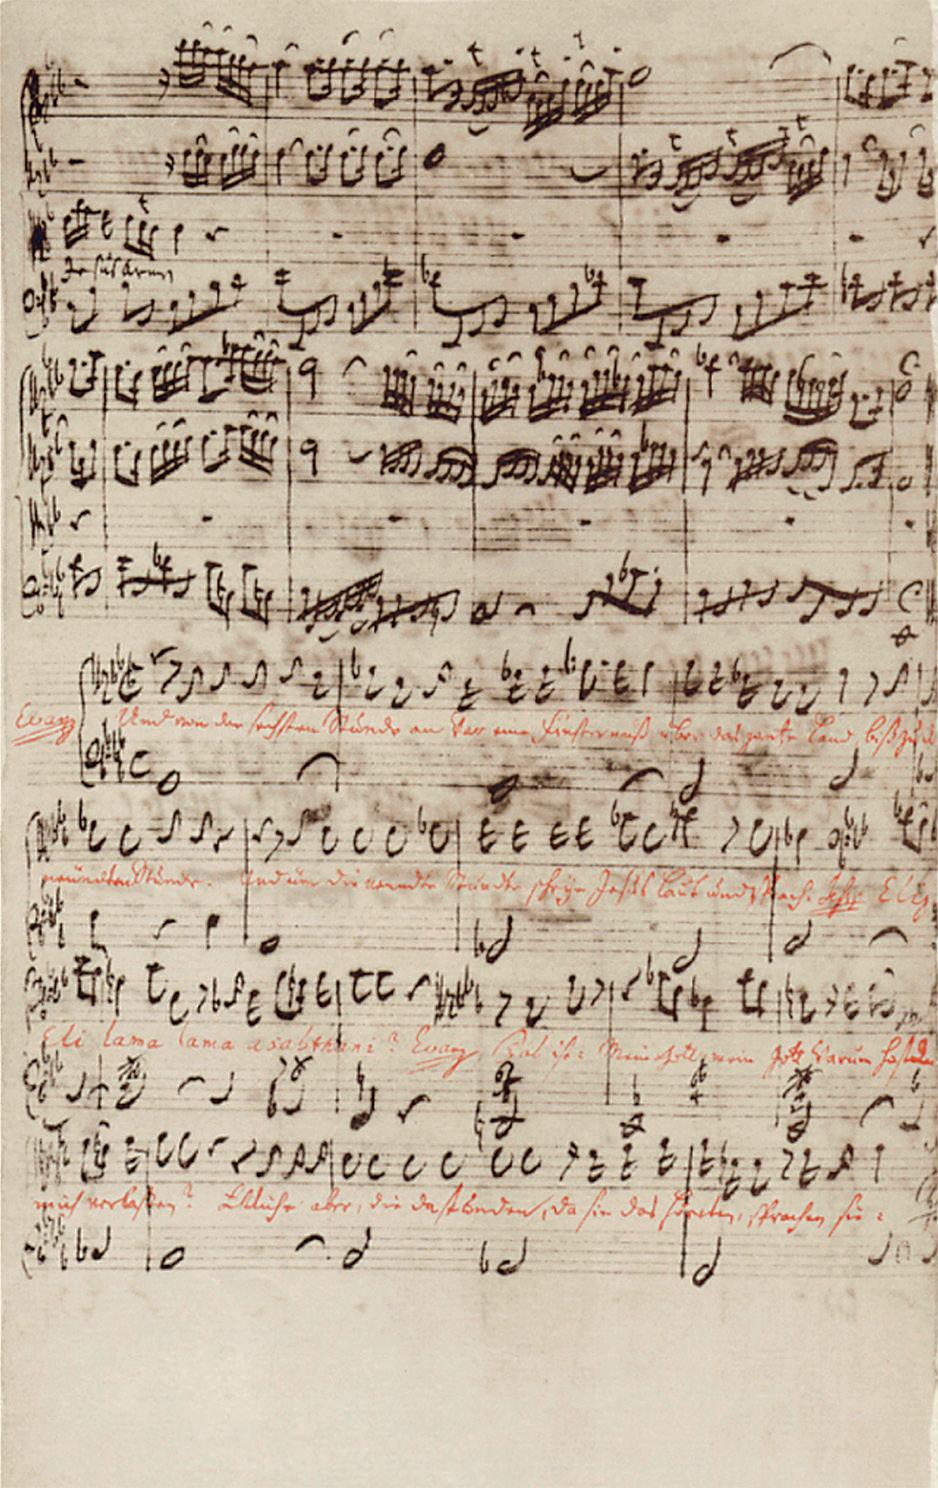 Jesus Armen
Evang. Und von der sechsten Stunde an war eine Finsterniß über das gantze Land biß zu
neundten Stunde. Und um die neundte Stunde schrye Jesus laut und sprach: Jesus Eli,
Eli lama lama asabthani? Evang. Das ist: Mein Gott, mein Gott warum hastu
mich verlaßen? Etliche aber, die da stunden, da sie das höreten, sprachen sie: